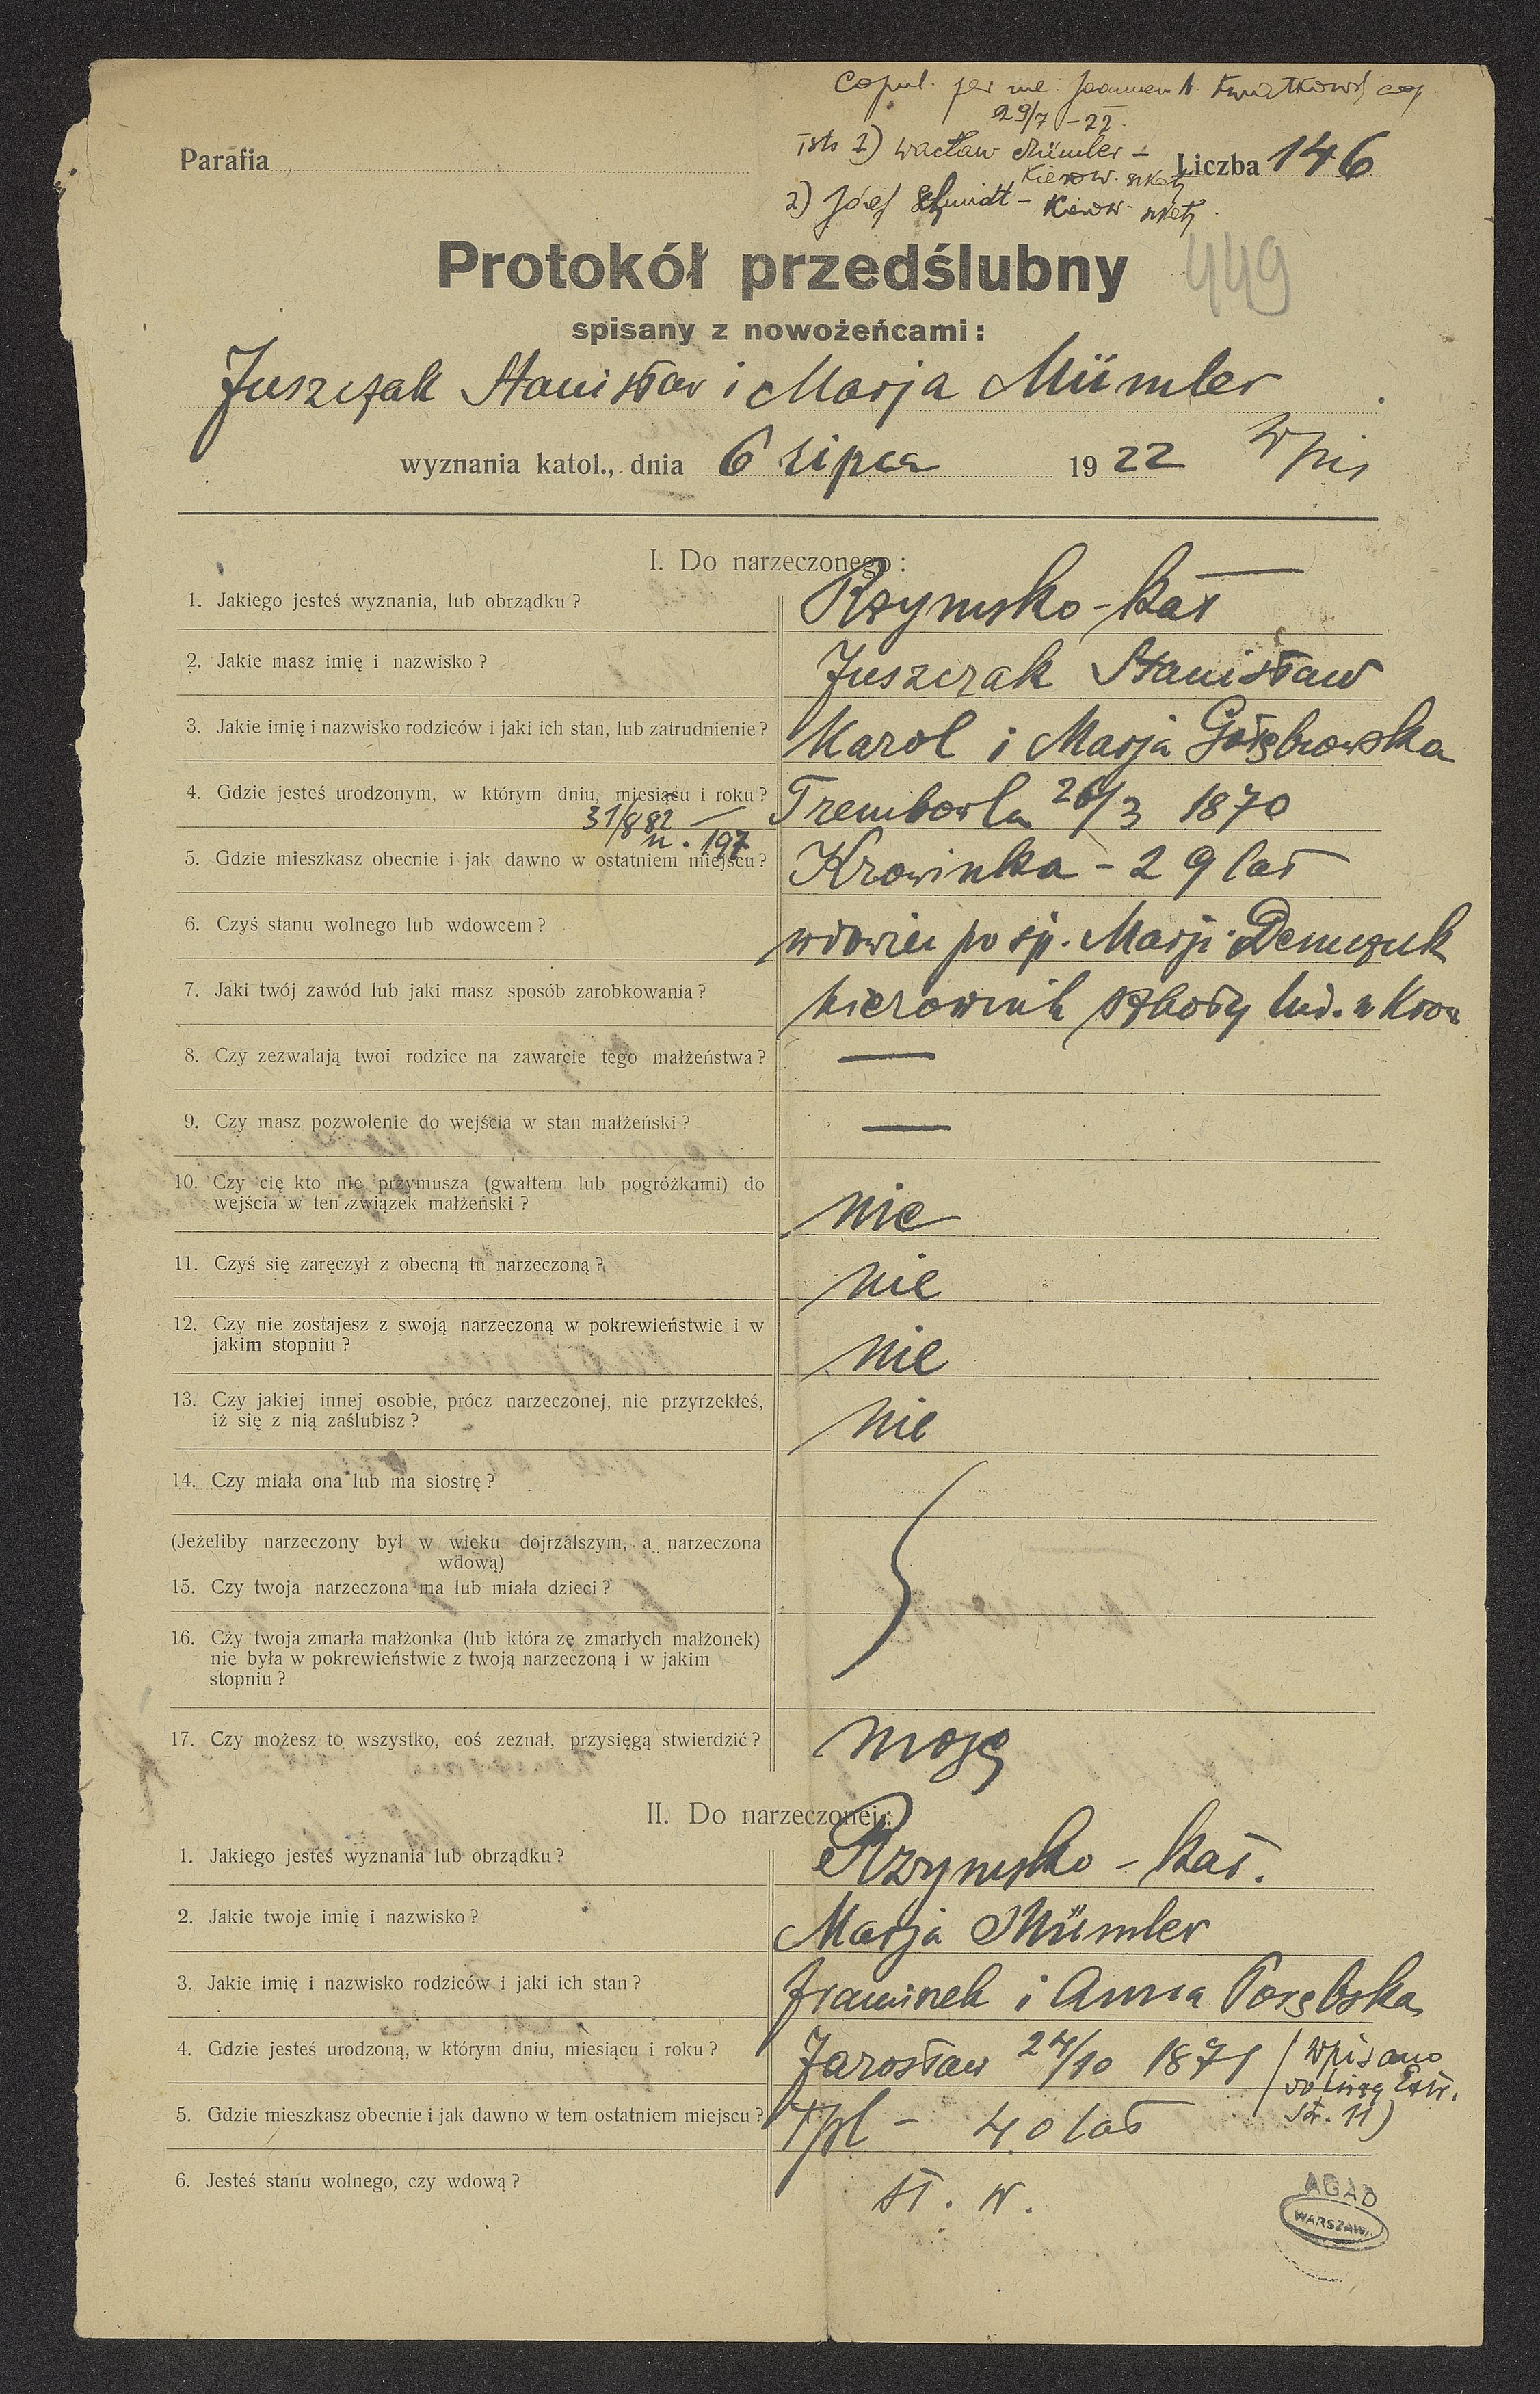 Copul. per me: Joannem N. Kwiatkowski coop.
29/7 - 22.
Tsts 1) Wacław Mümler -
Kierow. szkoły
Parafia
Liczba 146
2) Józef Schmidt - Kierow. szkoły.
Protokół przedślubny
449
spisany z nowożeńcami:
Juszczak Stanisław i Marja Mümler
wyznania katol., dnia 6 lipca 1922
Wpis
I. Do narzeczonego:
1. Jakiego jesteś wyznania, lub obrządku? Rzymsko-kat
2. Jakie masz imię i nazwisko? Juszczak Stanisław
3. Jakie imię i nazwisko rodziców i jaki ich stan, lub zatrudnienie? Karol i Marja Gołębiowska
4. Gdzie jesteś urodzonym, w którym dniu, miesiącu i roku? Trembowla 26/3 1870
31/8 82 —
n. 197
5. Gdzie mieszkasz obecnie i jak dawno w ostatniem miejscu? Krowinka - 29 lat
6. Czyś stanu wolnego lub wdowcem? wdowiec po śp. Marji Demczuk
7. Jaki twój zawód lub jaki masz sposób zarobkowania? kierownik szkoły lud. w Krow
8. Czy zezwalają twoi rodzice na zawarcie tego małżeństwa? —
9. Czy masz pozwolenie do wejścia w stan małżeński? —
10. Czy cię kto nie przymusza (gwałtem lub pogróżkami) do
wejścia w ten związek małżeński? nie
11. Czyś się zaręczył z obecną tu narzeczoną? nie
12. Czy nie zostajesz z swoją narzeczoną w pokrewieństwie i w
jakim stopniu? nie
13. Czy jakiej innej osobie, prócz narzeczonej, nie przyrzekłeś,
iż się z nią zaślubisz? nie
14. Czy miała ona lub ma siostrę?
(Jeżeliby narzeczony był w wieku dojrzalszym, a narzeczona
wdową)
15. Czy twoja narzeczona ma lub miała dzieci?
16. Czy twoja zmarła małżonka (lub która ze zmarłych małżonek)
nie była w pokrewieństwie z twoją narzeczoną i w jakim
stopniu?
17. Czy możesz to wszystko, coś zeznał, przysięgą stwierdzić? mogę
II. Do narzeczonej:
1. Jakiego jesteś wyznania lub obrządku? Rzymsko - kat.
2. Jakie twoje imię i nazwisko? Marja Mümler
3. Jakie imię i nazwisko rodziców i jaki ich stan? Franciszek i Anna Porębska
4. Gdzie jesteś urodzoną, w którym dniu, miesiącu i roku? Jarosław 24/10 1871 (Wpisano
do księg Extr.
str. 11)
5. Gdzie mieszkasz obecnie i jak dawno w tem ostatniem miejscu? Tpl - 40 lat
6. Jesteś stanu wolnego, czy wdową? st. w.
AGAD
WARSZAWA